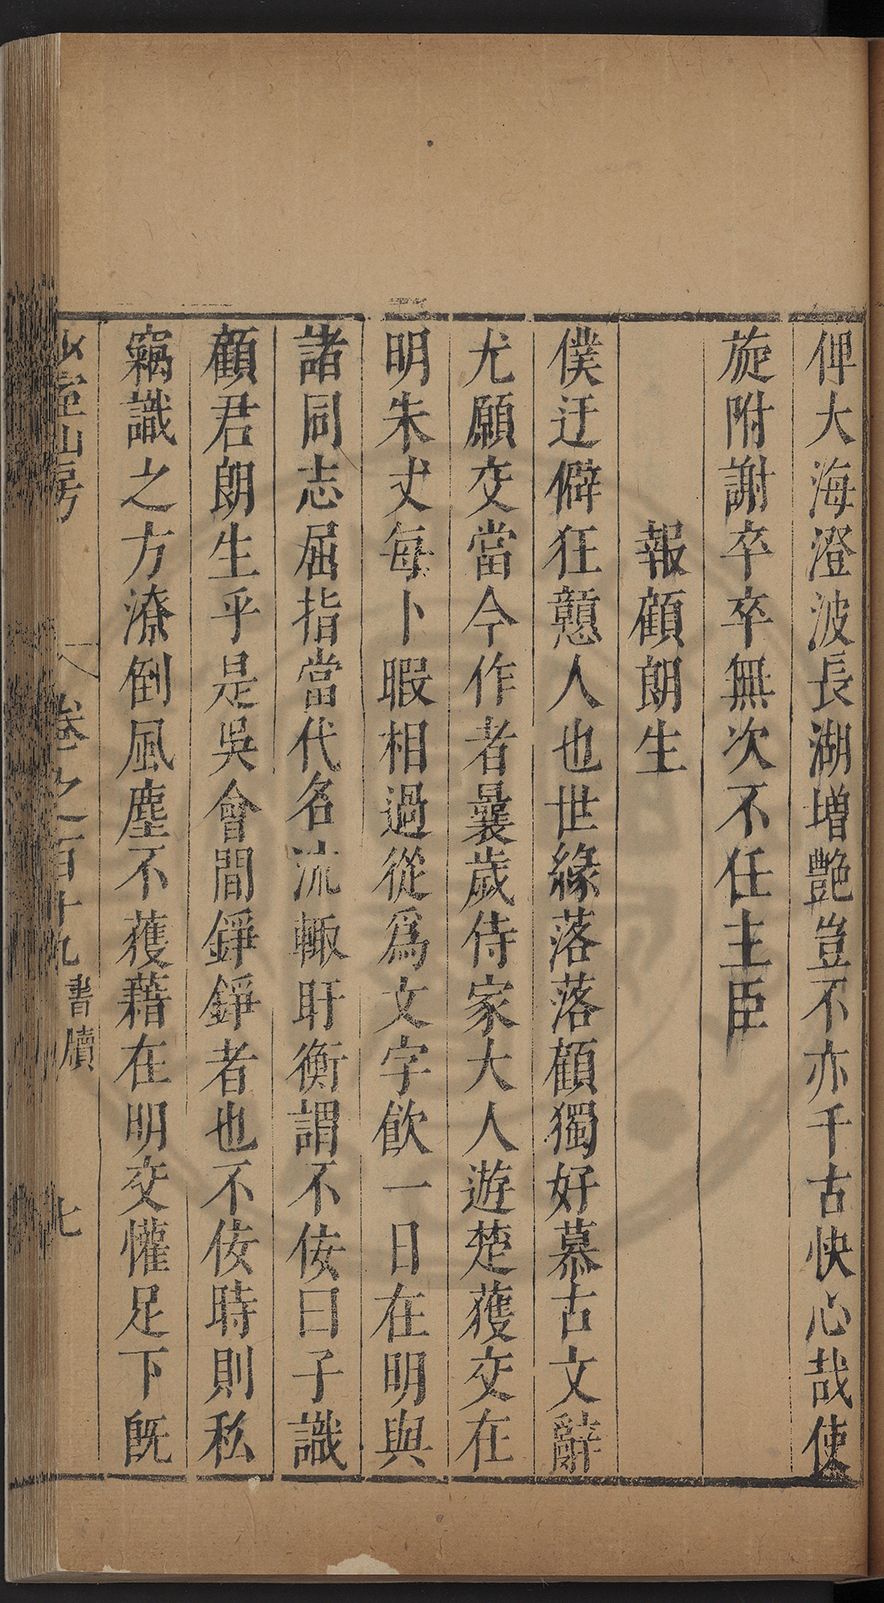 俾大海澄波長湖增艷豈不亦千古快心哉使
旋附謝卒卒無次不任主臣
報顧朗生
僕迂僻狂戇人也世緣落落顧獨好慕古文辭
尤願交當今作者曩歲侍家大人遊楚獲交在
明朱丈每卜暇相過從爲文字飲一日在明與
諸同志屈指當代名流輙盱衡謂不佞曰子識
顧君朗生乎是吳會間錚錚者也不佞時則私
竊識之方潦倒風塵不獲藉在明交懽足下旣
山房
卷之一百十九
書牘
七